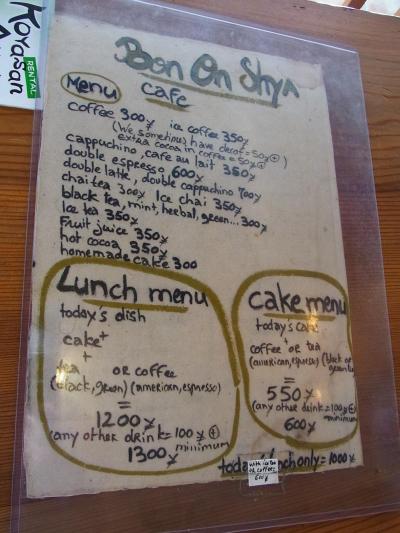 Koyasan
RENTAL
Bon On Shya
Menu cafe
coffee 300¥ ice coffee 350¥
(We sometimes have decaf=50¥⊕)
extra cocoa in coffee=50¥⊕
cappuchino, cafe au lait 350¥
double espresso 600¥
double latte, double cappuchino 700¥
chai tea 300¥ Ice chai 350¥
black tea, mint, herbal, green... 300¥
Ice tea 350¥
Fruit juice 350¥
hot cocoa 350¥
homemade cake 300
Lunch menu
today's dish
+
cake
+
tea OR coffee
(black, green) (american, espresso)
=
1200¥
(any other drink=100¥⊕
minimum
1300¥
cake menu
today's cake
+
coffee or tea
(american, espresso) (black or
green tea
=
550¥
(any other drink=100¥⊕
minimum
600¥
today lunch only=1000¥
with ice tea
or coffee
600¥